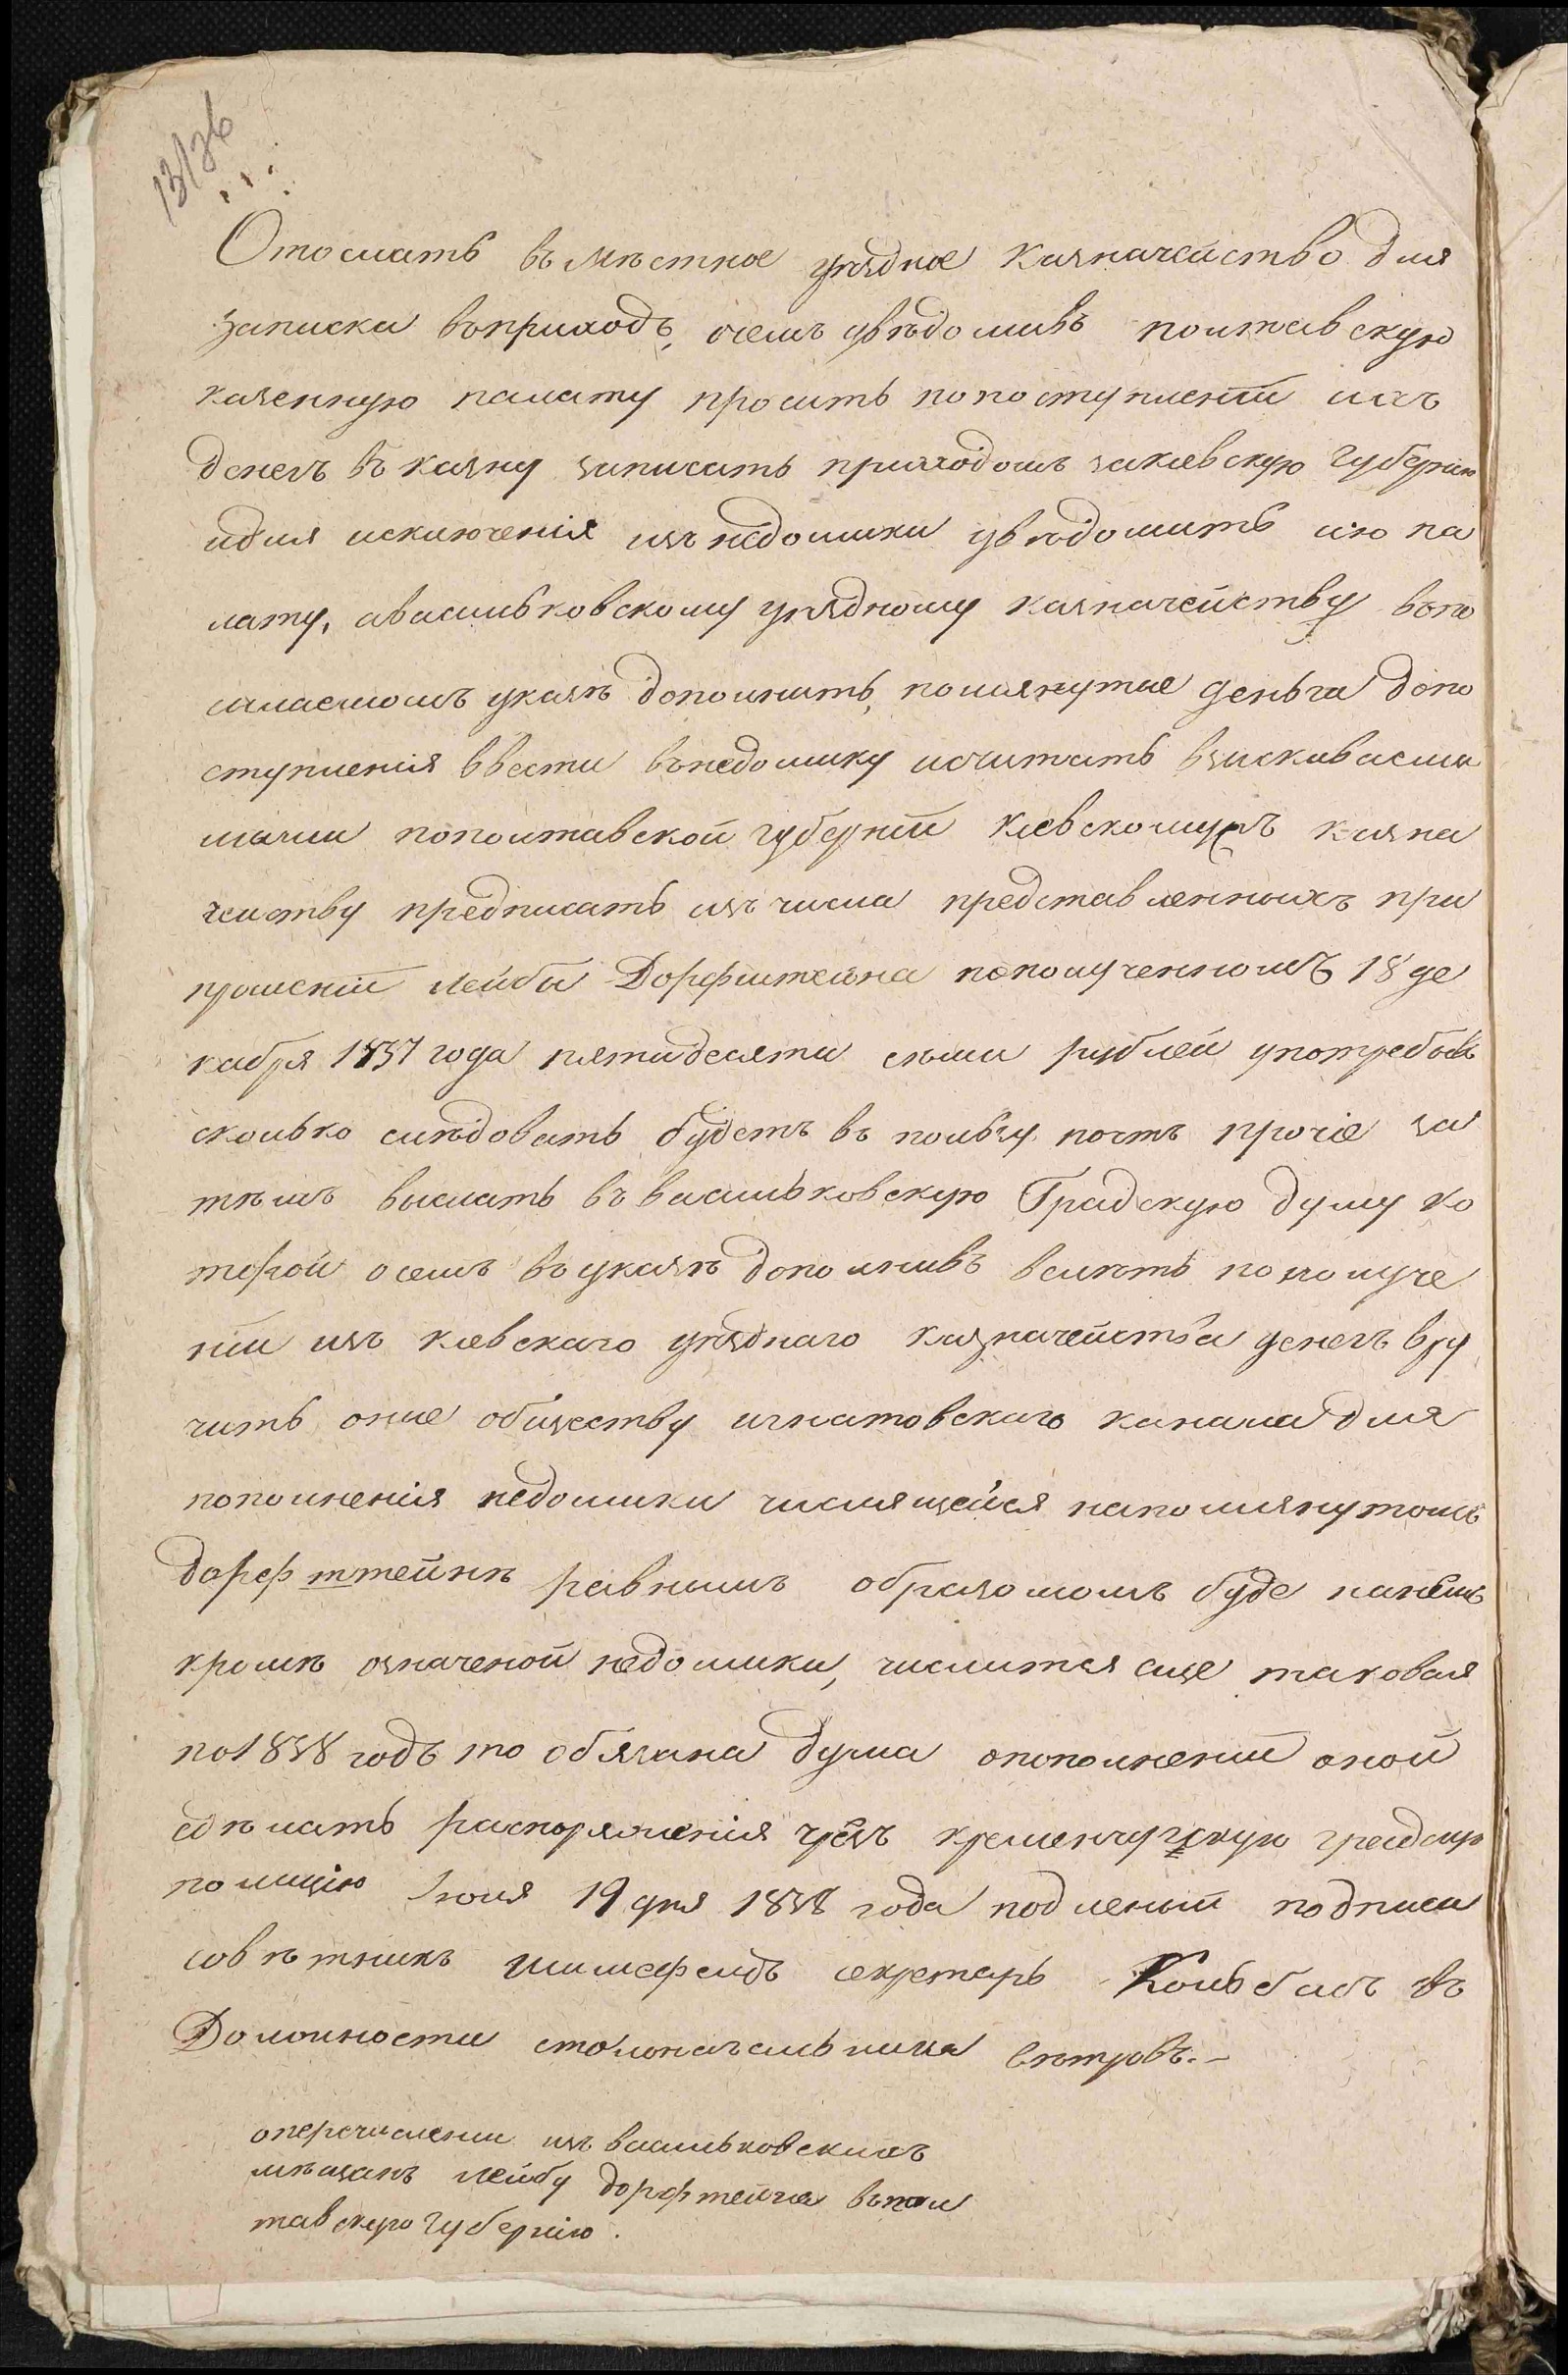 13126
Отослать въ мѣстное уѣздное казначейство для
записки въприходъ, очемъ увѣдомивъ полтавскую
казенную палату просить попоступленіи ихъ
денегъ въ казну записать приходомъ закіевскую губернію
идля исключенія изъ недоимки увѣдомить сію па
лату, авасильковскому уѣздному казначейству впо
сылаемомъ указѣ дополнить, помянутые деньги допо
ступленія ввести внедоимку исчитать взыскиваемы
мыми пополтавской губерніи кіевскомуж казна
чейству предписать изъ числа представленныхъ при
прошеніи Лейбы Дорфштейна пополученномъ 18 де
кабря 1837 года пятидесяти семи рублей употребивъ
сколько слѣдовать будетъ въ пользу почтъ прочіе за
тѣмъ выслать въ васильковскую Градскую думу ко
торой осемъ въ указѣ дополнивъ велѣть пополуче
ніи изъ кіевскаго уѣзднаго казначейства денегъ вру
чить оные обществу игнатовскаго кагала для
пополненія недоимки числящейся напомянутомъ
дорфштейнѣ равнымъ образомомъ буде нанемъ
кромѣ означеной недоимки, числится еще таковая
по 1838 годъ то обязана дума опополненіи оной
сдѣлать распоряженія чрезъ кременчугскую градскую
полицію Іюля 19 дня 1838 года подленый подписи
совѣтникъ секретарь въ
Должности столоначальника вѣтровъ.-
оперечислении изъ васильковскихъ
мѣщанъ Лейбу дорфтейна въпол
тавскую губернію.